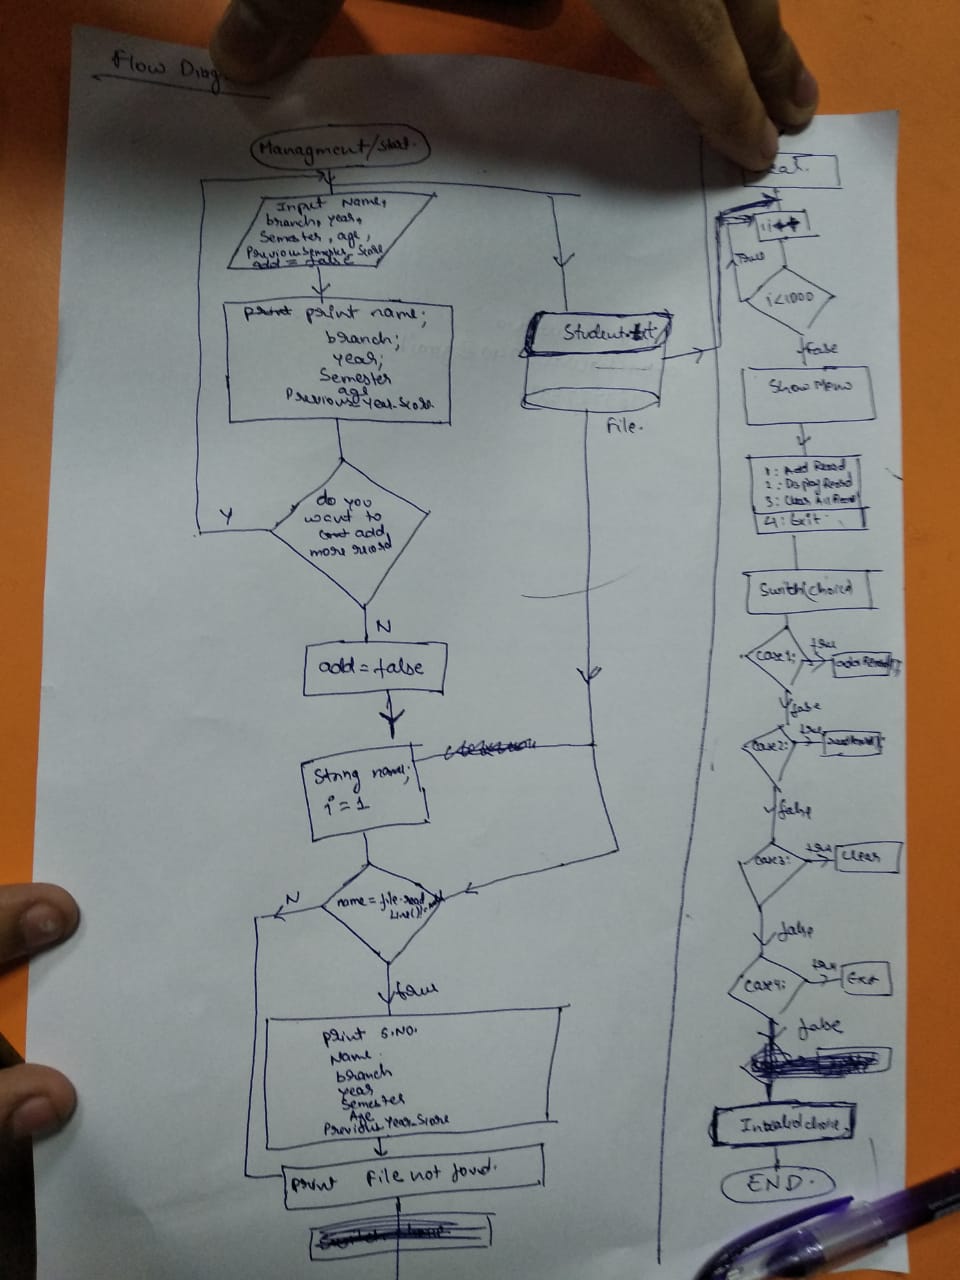 Flow Diag
Managment/Start.
Input Name,
branch, year,
Semester, age,
Previous Semester_Score
add = false
print name;
branch;
year;
Semester
age
Previous_Year_Score
do you
want to
add
more record
Y
N
add = false
String name;
i = 1
name = file.read
Line()!=
N
true
print S.NO.
Name
branch
year
Semester
Age
Previous Year_Score
print File not found.
Student.txt
File.
i++
True
i<1000
false
Show Menu
1: Add Record
2: Display Record
3: Clear All Record
4: Exit
Switch(choice)
case1:
true
false
case2:
true
false
case3:
true
clear
false
case4:
true
Exit
false
Invalid choice.
END.